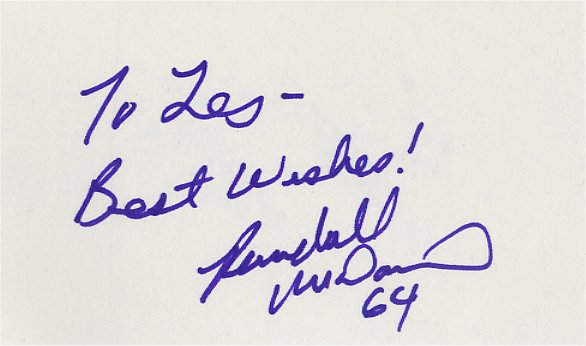 To Les-
Best Wishes!
Randall
McDaniel
64